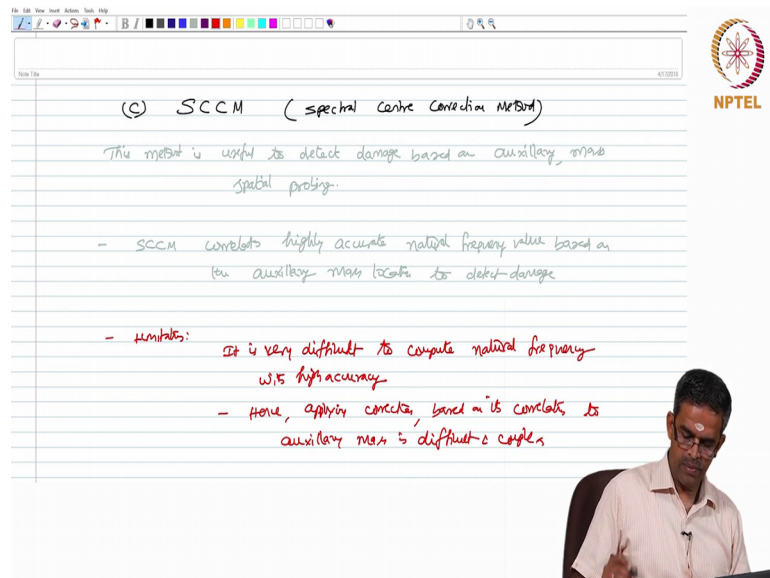 File Edit View Insert Actions Tools Help
B I
Note Title
4/17/2018
NPTEL
(C) SCCM (Spectral Centre Correction Method)
This method is useful to detect damage based on auxillary mass
spatial probing.
- SCCM correlates highly accurate natural frequency value based on
the auxillary mass location to detect damage
- limitations:
It is very difficult to compute natural frequency
with high accuracy
- Hence, applying correction, based on its correlation to
auxillary mass is difficult & complex